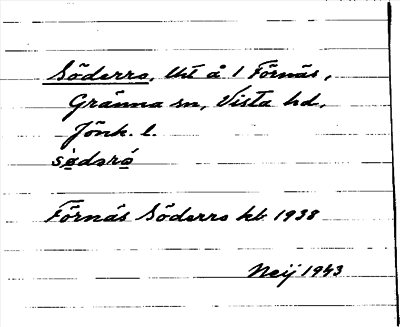 Söderro, lht å 1 Förnäs,
Gränna sn, Vista hd,
Jönk. l.
sø̀dəró
Förnäs Söderro kb 1938
Neij 1943